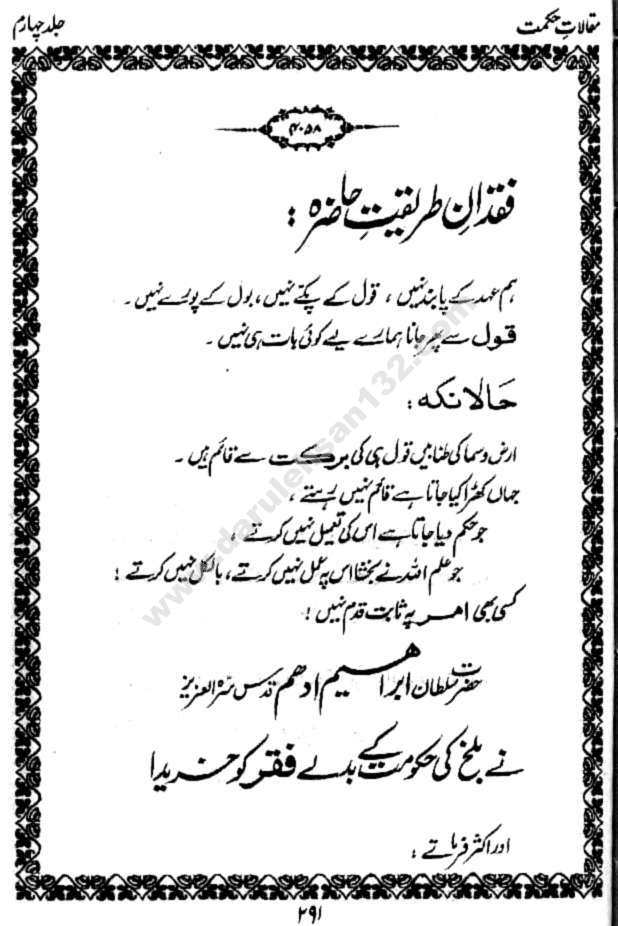 مقالاتِ حکمت
جلد چہارم
۴۰۵۸
فقدانِ طریقیتِ حاضرہ :
ہم عہد کے پابند نہیں ، قول کے پکے نہیں ، بول کے پورے نہیں ۔
قول سے پھر جانا ہمارے لیے کوئی بات ہی نہیں ۔
حالانکہ :
ارض و سما کی طنابیں قول ہی کی برکت سے قائم ہیں ۔
جہاں کھڑا کیا جاتا ہے قائم نہیں رہتے ،
جو حکم دیا جاتا ہے اس کی تعمیل نہیں کرتے ،
جو علم اللہ نے بخشا اس پہ عمل نہیں کرتے ، بالکل نہیں کرتے !
کسی بھی امر پہ ثابت قدم نہیں !
حضرت سلطان ابراھیم ادھم قدس سرہ العزیز
نے بلخ کی حکومت کے بدلے فقر کو خریدا
اور اکثر فرماتے :
۲۹۱
www.darulehsan132.com